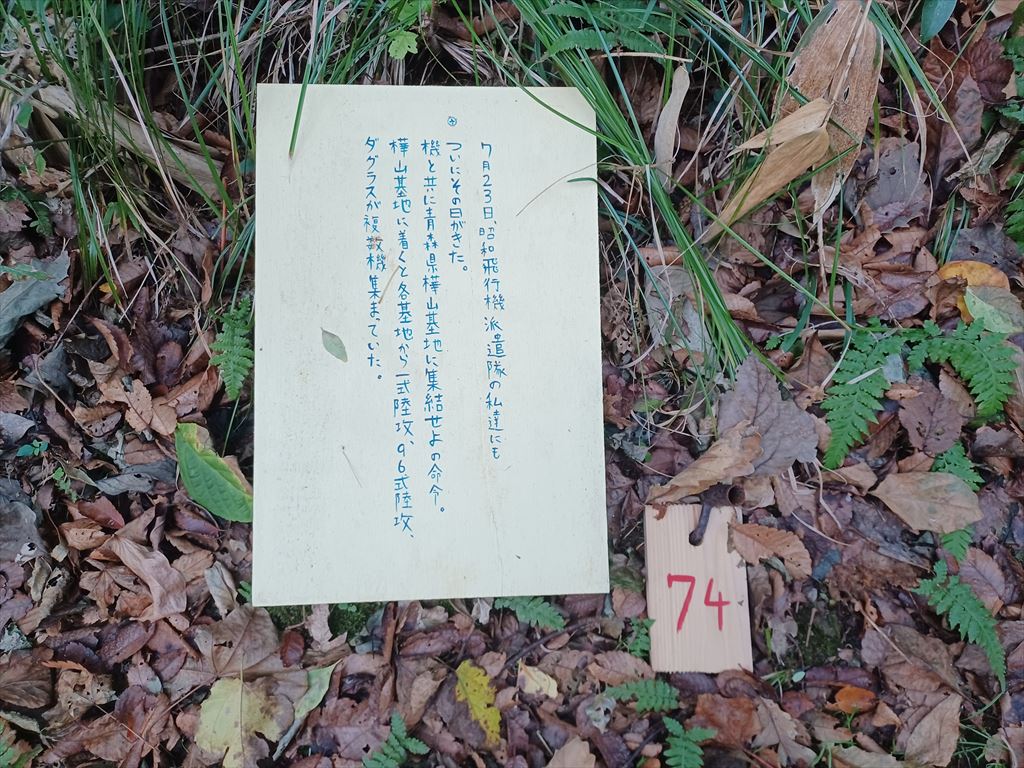 ㊉
7月23日、昭和飛行機 派遣隊の私達にも
ついにその日がきた。
機と共に青森県樺山基地に集結せよの命令。
樺山基地に着くと各基地から一式陸攻、96式陸攻、
ダグラスが複数機集まっていた。
74